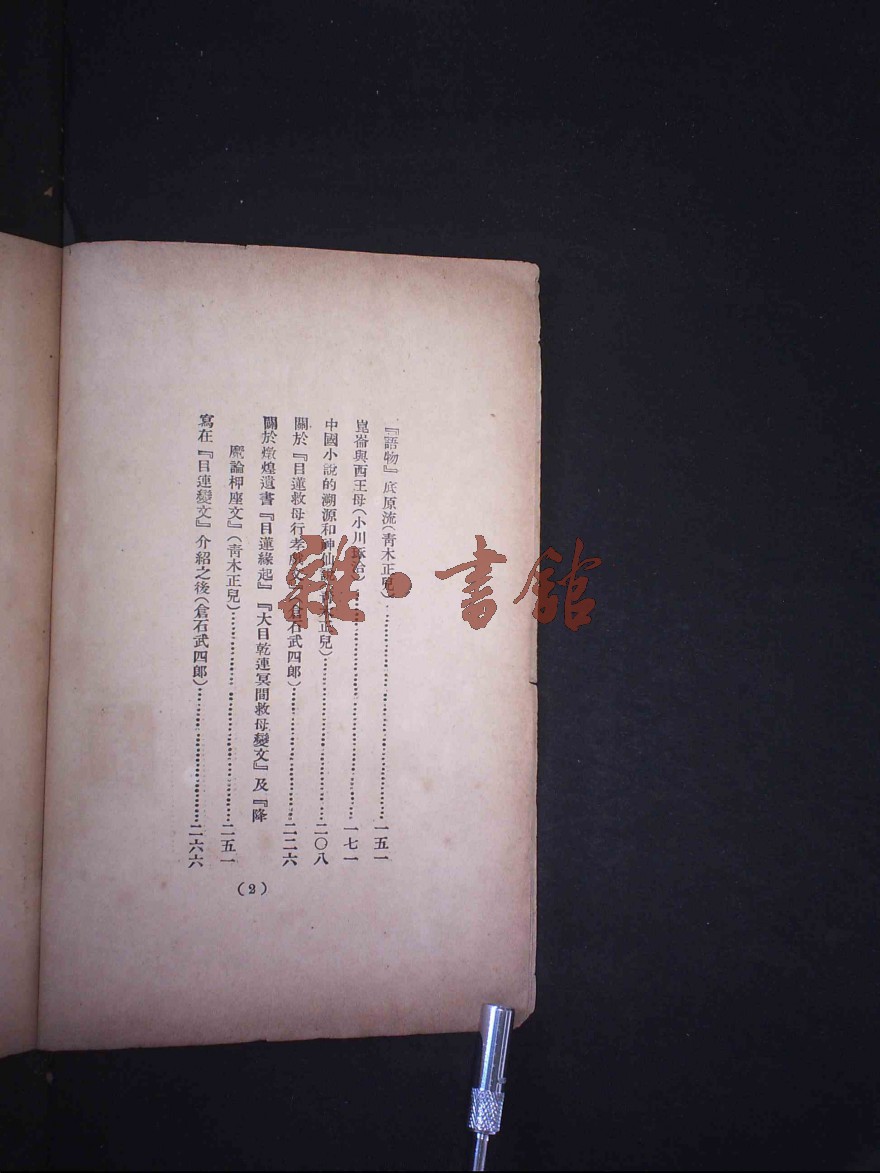 『語物』底原流(青木正兒)……………………一五一
崑崙與西王母(小川琢治)……………………一七一
中國小說的溯源和神仙說(青木正兒)……………………二〇八
關於『目蓮救母行孝戲文』(倉石武四郎)……………………二二六
關於燉煌遺書『目蓮緣起』『大目乾連冥間救母變文』及『降
魔論柙座文』(青木正兒)……………………二五一
寫在『目連變文』介紹之後(倉石武四郎)……………………二六六
(2)
雜·書館